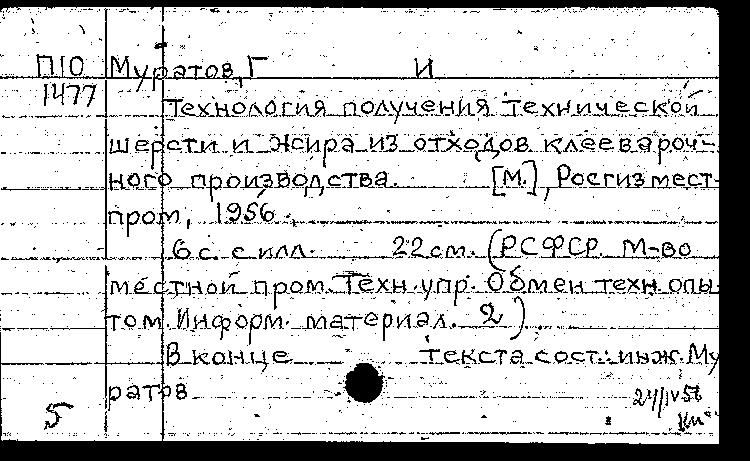 П10 Муратов, Г И
1477 Технология получения технической
шерсти и жира из отходов клееевароч-
ного производства. [М.], Росгизмест-
пром, 1956.
6 с. с илл. 22 см. (РСФСР. М-во
местной пром. Техн. упр. Обмен техн. опы
том. Информ. материал. 2).
В конце текста сост.: инж. Му
ратов
5 24/IV 56